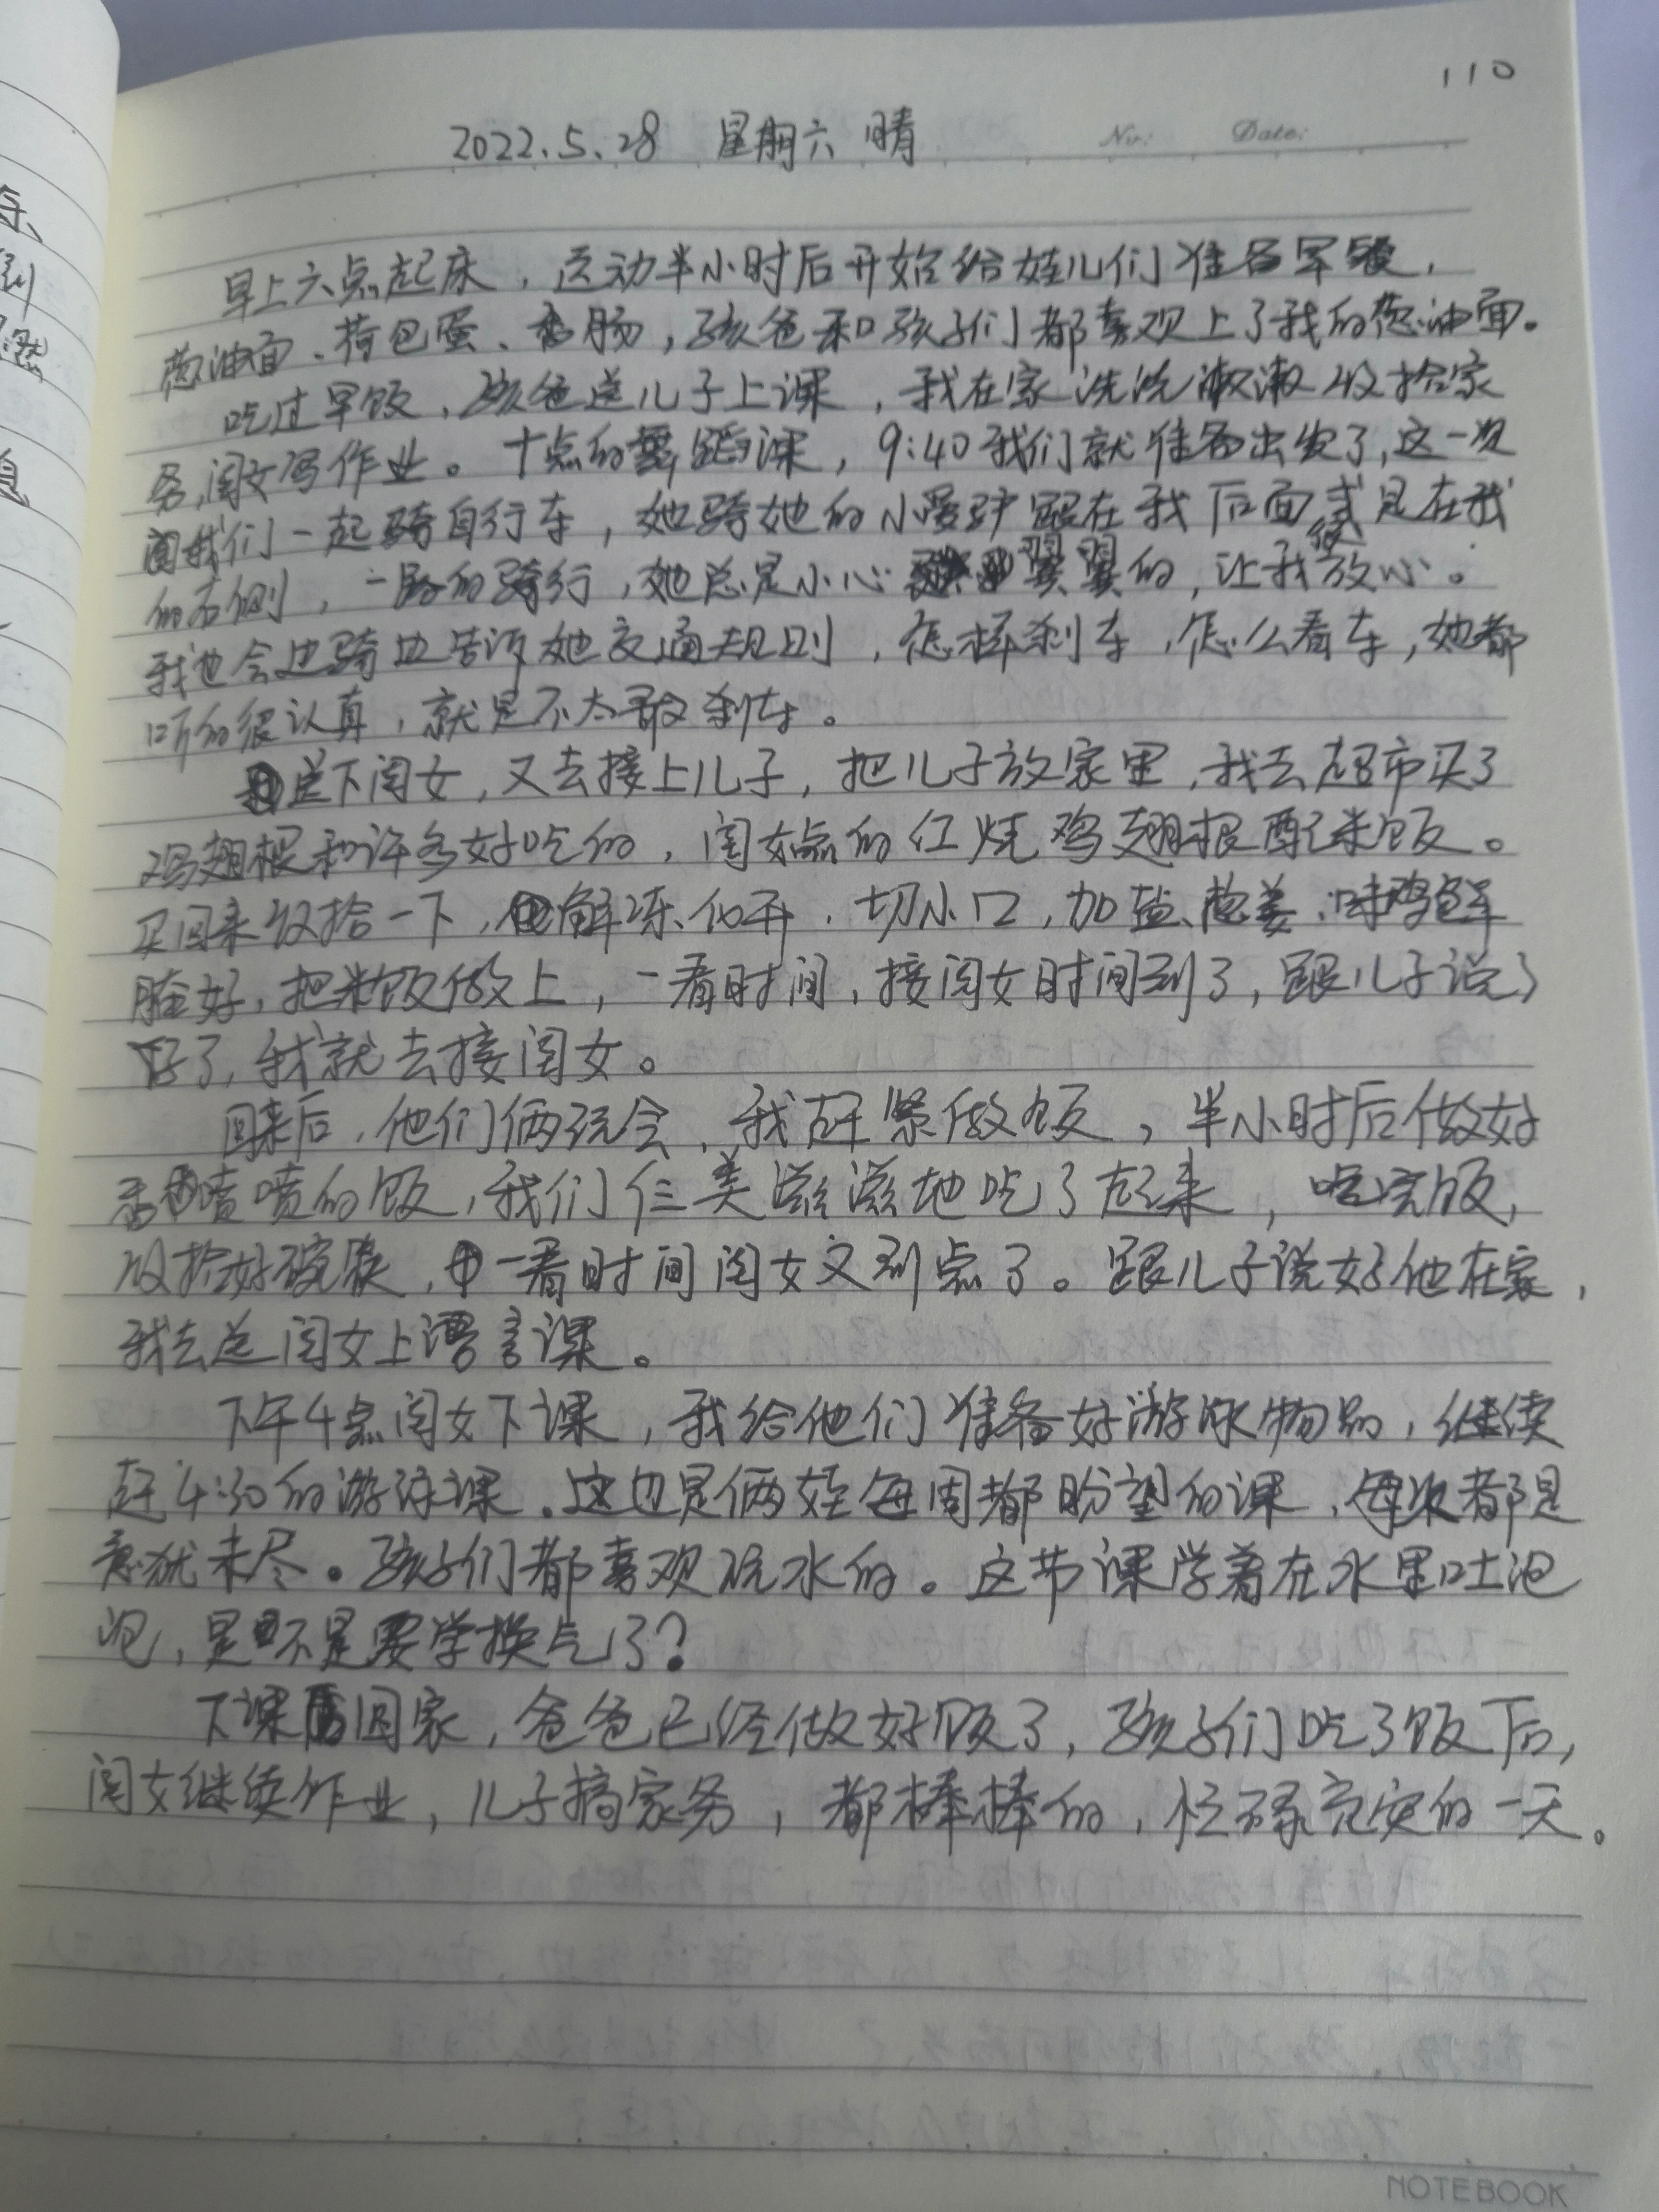 110
2022.5.28 星期六 晴
No: Date:
早上六点起床，运动半小时后开始给娃儿们准备早餐，
葱油面、荷包蛋、香肠，孩爸和孩子们都喜欢上了我的葱油面。
吃过早饭，孩爸送儿子上课，我在家洗洗漱漱收拾家
务，闺女写作业。十点的舞蹈课，9:40我们就准备出发了，这一次
我们一起骑自行车，她骑她的小爱驴跟在我后面或是在我
的右侧，一路的骑行，她总是小心翼翼的，让我很放心。
我也会边骑边告诉她交通规则，怎样刹车，怎么看车，她都
听的很认真，就是不太敢刹车。
送下闺女，又去接上儿子，把儿子放家里，我去超市买了
鸡翅根和许多好吃的，闺女点的红烧鸡翅根配米饭。
买回来收拾一下，解冻化开，切小口，加盐、葱姜、味鸡鲜
腌好，把米饭做上，一看时间，接闺女时间到了，跟儿子说
好了，我就去接闺女。
回来后，他们俩玩会，我赶紧做饭，半小时后做好
香喷喷的饭，我们仨美滋滋地吃了起来，吃完饭，
收拾好碗筷，一看时间闺女又到点了。跟儿子说好他在家，
我去送闺女上语言课。
下午4点闺女下课，我给他们准备好游泳物品，继续
赶4:30的游泳课。这也是俩娃每周都盼望的课，每次都是
意犹未尽。孩子们都喜欢玩水的。这节课学着在水里吐泡
泡，是不是要学换气了？
下课回家，爸爸已经做好饭了，孩子们吃了饭后，
闺女继续作业，儿子搞家务，都棒棒的，忙碌充实的一天。
NOTEBOOK